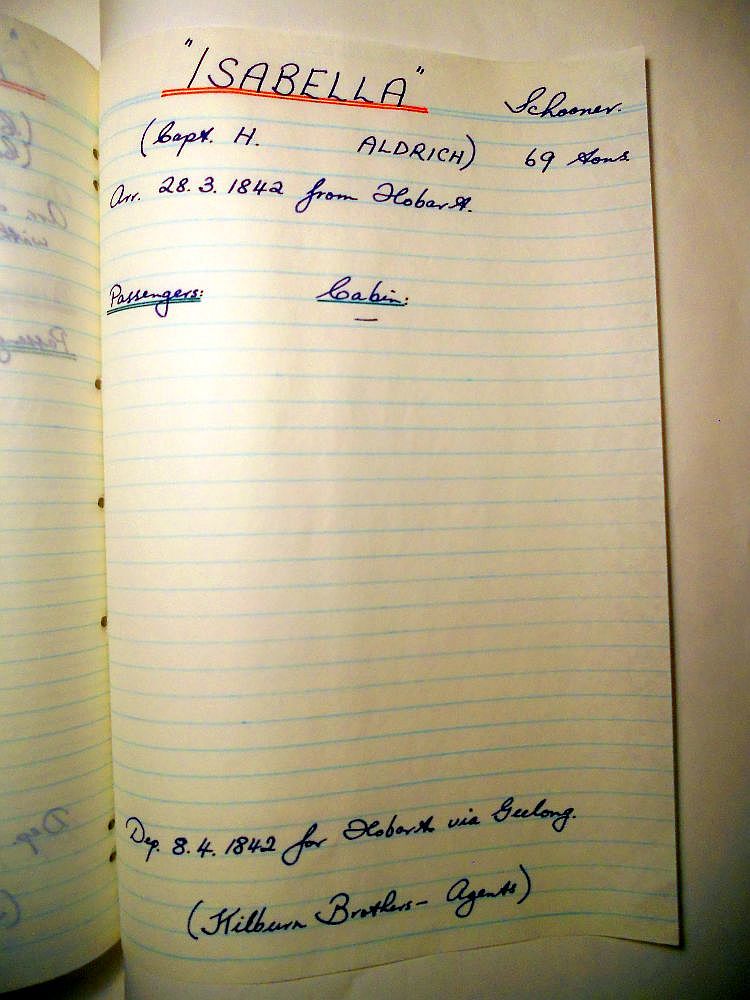 "ISABELLA" Schooner.
(Capt. H. ALDRICH) 69 tons
Arr. 28.3.1842 from Hobart.
Passengers: Cabin:
—
Dep. 8.4.1842 for Hobart via Geelong.
(Kilburn Brothers - Agents)